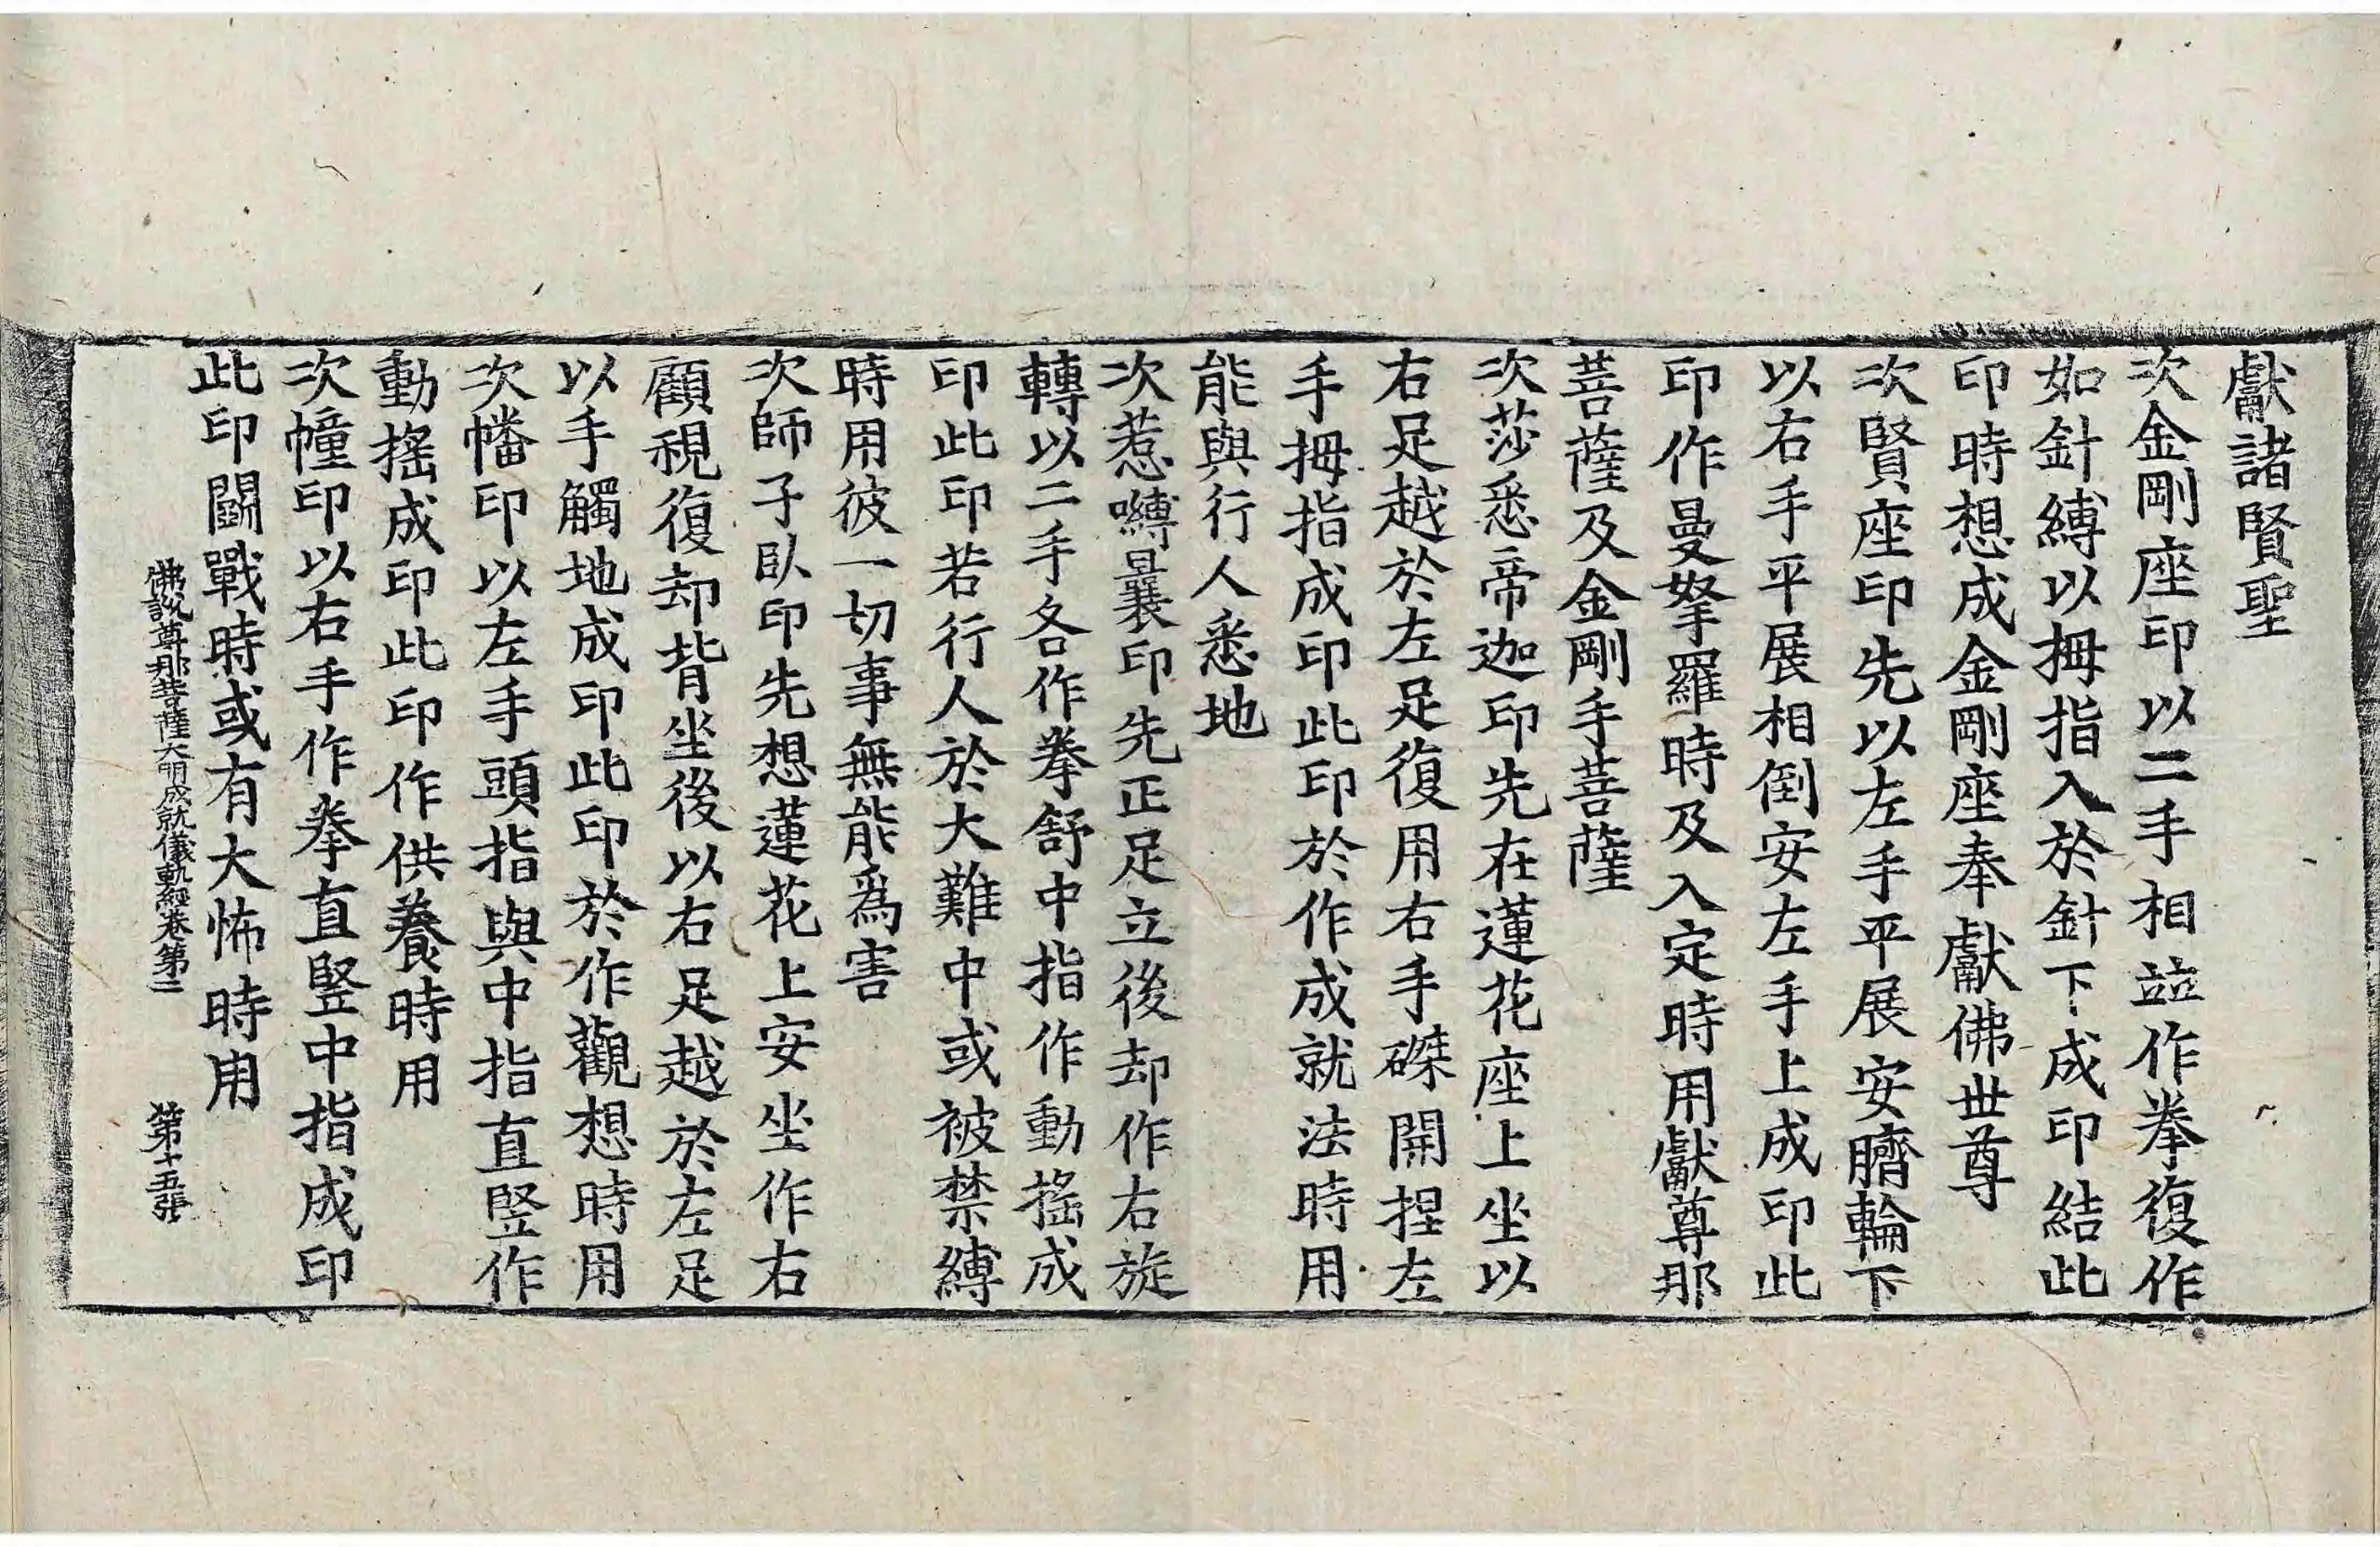 獻諸賢聖
次金剛座印以二手相並作拳復作
如針縛以拇指入於針下成印結此
印時想成金剛座奉獻佛世尊
次賢座印先以左手平展安臍輪下
以右手平展相倒安左手上成印此
印作曼拏羅時及入定時用獻尊那
菩薩及金剛手菩薩
次莎悉帝迦印先在蓮花座上坐以
右足越於左足復用右手磔開捏左
手拇指成印此印於作成就法時用
能與行人悉地
次惹嚩曩印先正足立後却作右旋
轉以二手各作拳舒中指作動搖成
印此印若行人於大難中或被禁縛
時用彼一切事無能爲害
次師子臥印先想蓮花上安坐作右
顧視復却背坐後以右足越於左足
以手觸地成印此印於作觀想時用
次幡印以左手頭指與中指直竪作
動搖成印此印作供養時用
次幢印以右手作拳直竪中指成印
此印鬪戰時或有大怖時用
佛說尊那菩薩大明成就儀軌經卷第二 第十五張